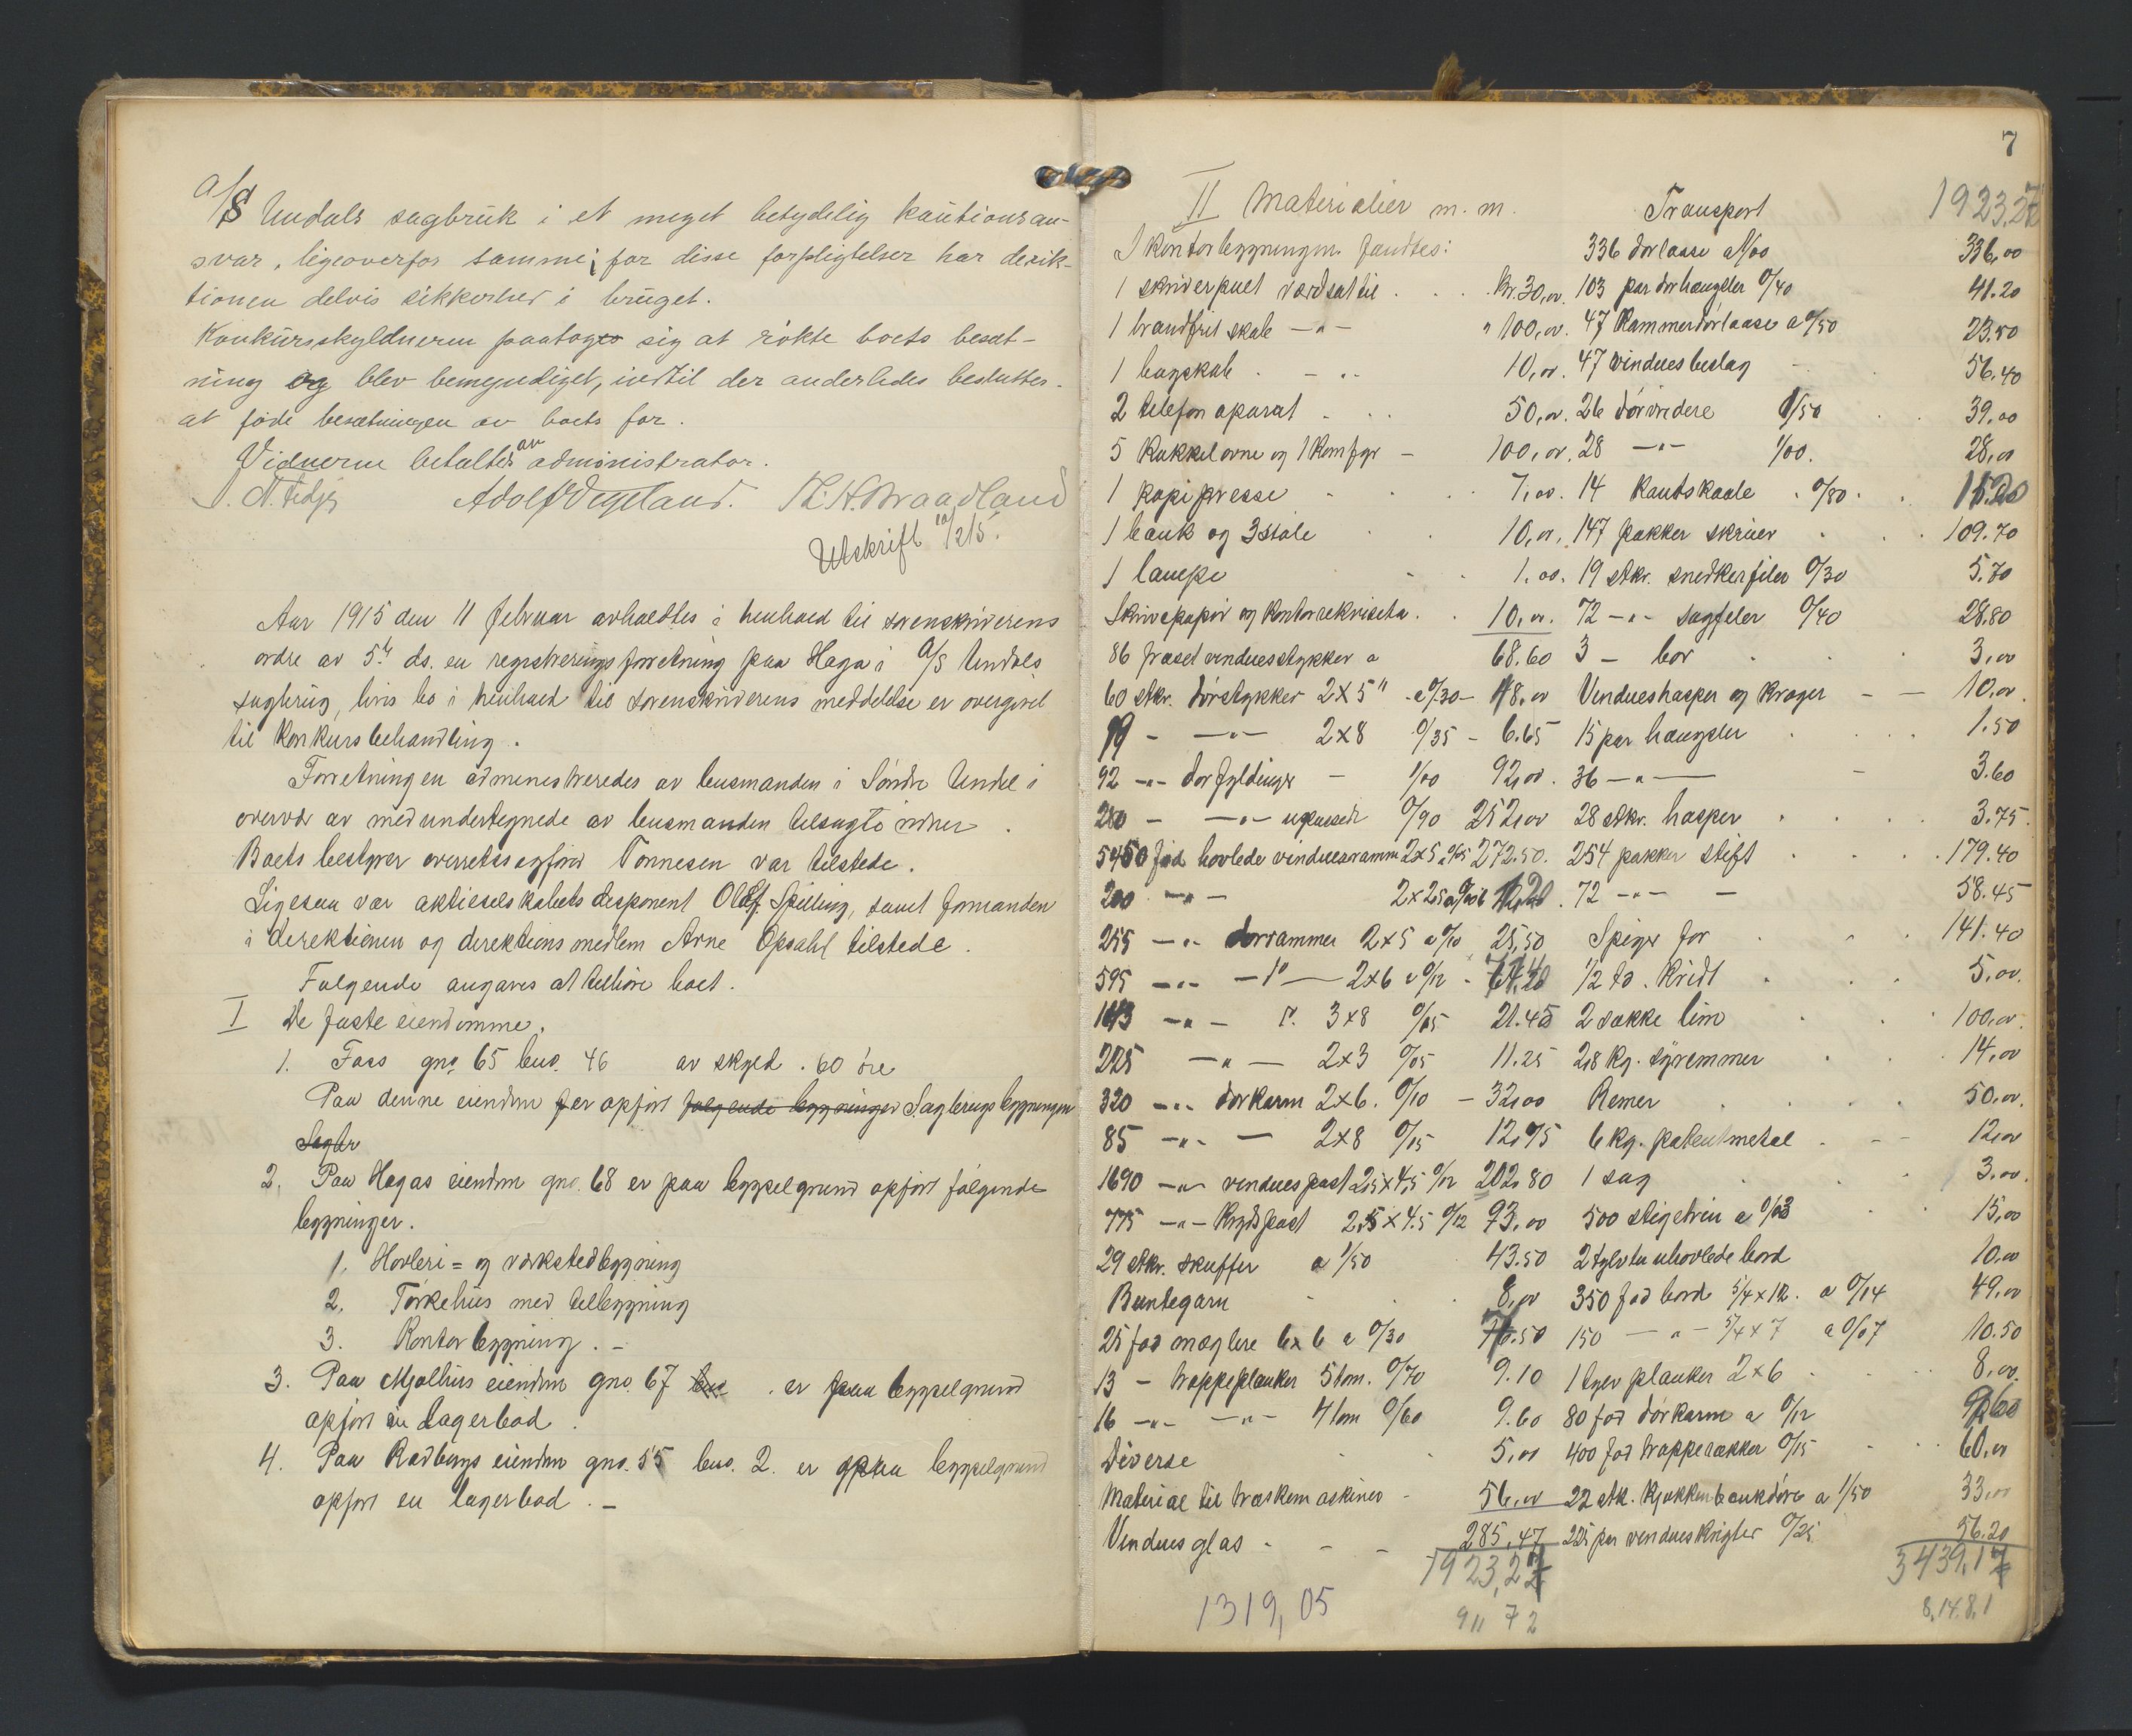 A/S Undals sagbruk i et meget betydelig kautionsan-
svar, ligeoverfor samme; for disse forpligtelser har direk-
tionen delvis sikkerhed i bruget.
Konkursskyldneren paatoges sig at røkte boets besæt-
ning og blev bemyndiget, indtil der anderledes besluttes
at føde besætningen av boets for.
Vidnerne betaltes av administrator.
Adolf Vegeland. Th. H. Braadland
Utskrift 10/2 15.
Aar 1915 den 11 februar avholdtes i henhold til sorenskriverens
ordre av 5te ds. en registreringsforretning paa Haga i A/S Undals
sagbrug, hvis bo i henhold til sorenskriverens meddelelse er overgivet
til konkursbehandling.
Forretningen administreredes av lensmanden i Søndre Undal i
overvær av medundertegnede av lensmanden tilsagte vidner.
Boets bestyrer overretssagfører Tønnesen var tilstede.
Ligesaa var aktieselskabets disponent Oluf Spilling, samt formanden
i direktionen og direktionsmedlem Arne Opsahl tilstede.
Følgende angaves at tilhøre boet.
I De faste eiendomme.
1. Foss gno. 65 bno. 46 av skyld . 60 øre
Paa denne eiendom er opført følgende bygninger Sagbrugsbygningen
Sagbr
2. Paa Hagas eiendom gno. 68 er paa bygselgrund opført følgende
bygninger.
1. Høvleri= og verkstedbygning
2. Tørkehus med tilbygning
3. Kontorbygning. -
3. Paa Mjølhus eiendom gno. 67 bno. er paa bygselgrund
opført en Lagerbod.
4. Paa Rødbergs eiendom gno. 55 bno. 2. er paa bygselgrund
opført en lagerbod. -
7
II Materialier m. m.
I kontorbygningen fandtes:
1 skriverpult værdsat til Kr. 30,00.
1 brandfrit skab -"- " 100,00.
1 bogskab - " - 10,00.
2 telefon aparat 50,00.
5 Kakkelovne og 1 Komfyr - 100,00.
1 kopipresse 7,00.
1 bænk og 3 stole 10,00.
1 lampe 1.00.
Skrivepapir og Kontorrekvisita. 10,00.
86 fræset vinduesstykker a 68.60
60 stkr. dørstykker 2x5" a 0/30 - 48,00
19 - -"- 2x8 0/35 - 6.65
92 -"- dørfyldinger - 1/00 92,00.
280 - -"- upussede 0/90 252,00
5450 fod høvlede vinduesramm 2x5 a 0/05 272.50.
200 -"- 2x2,5 a 0/06
255 -"- dørrammer 2x5 a 0/10 25,50
595 -"- -"- 2x6 a 0/12 -
143 -"- 3x8 0/15 21.45
225 -"- 2x3 0/05 11.25
320 -"- dørkarm 2x6. 0/10 - 32,00
85 -"- - 2x8 0/15 12,75
1690 -"- vinduespost 2,5x4,5 0/12 202,80
775 -"- Krydspost 2,5x4.5 0/12 93,00
29 stkr. skuffer a 1/50 43.50
Buntegarn 8,00
25 fod mæglere 6x6 a 0/30
13 - trappeplanker 5 tom. 0/70 9.10
16 -"- -"- 4 tom 0/60 9.60
Diverse 5,00
Material til træskemaskiner - 56,00
Vinduesglas - 285,47
1923,27
1319,05
911 72
Transport 1923,27
336 dørlaase a 1/00 336,00
103 par dørhængsler 0/40 41.20
47 Kammerdørlaaser a 0/50 23.50
47 vinduesbeslag 56.40
26 dørvridere 1/50 39,00
28 -"- 1/00. 28,00
14 Kantskaale 0/80 11.20
147 pakker skruer 109.70
19 stkr. snedkerfiler 0/30 5.70
72 -"- sagfiler 0/40 28.80
3 - bor 3,00
Vindueshasper og Kroger - - 10,00.
15 par hængsler 1.50
36 -"- - 3.60
28 stkr. hasper 3.75.
254 pakker stift 179.40
72 -"- - 58.45
Spiger for 141.40
1/2 td. Kridt 5,00.
2 sække lim 100,00.
2,8 Kg. syremmer 14,00
Remer 50,00.
6 Kg. patentmetal 12,00
1 sag 3,00.
500 stigetrin a 0/03 15,00
2 tylvter uhøvlede bord 10,00
350 fod bord 5/4x12. a 0/14 49,00
150 -"- 5/4x7 a 0/07 10.50
1 tylvt planker 2x6 8,00.
80 fod dørkarm a 0/12 9,60
400 fod trapperækker 0/15 60,00
22 stk. Kjøkkenbænkdøre a 1/50 33,00
225 par vinduesKnigter 0/25 56.20
3439,17
8,14.8,1